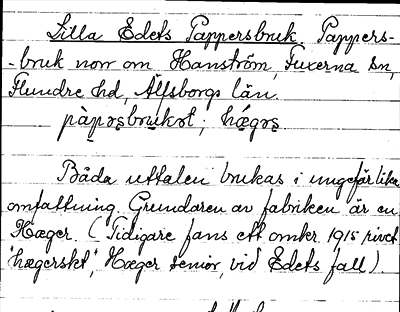 Lilla Edets Pappersbruk, Pappers-
-bruk norr om Hanström, Fuxerna sn,
Flundre hd, Älfsborgs län.
pàpəs̥brukət; hǽgəs̥
Båda uttalen brukas i ungefär lika
omfattning. Grundaren av fabriken är en
Hæger. (Tidigare fans ett omkr. 1915 rivet
"hægerskt", Hæger senior, vid Edets fall).